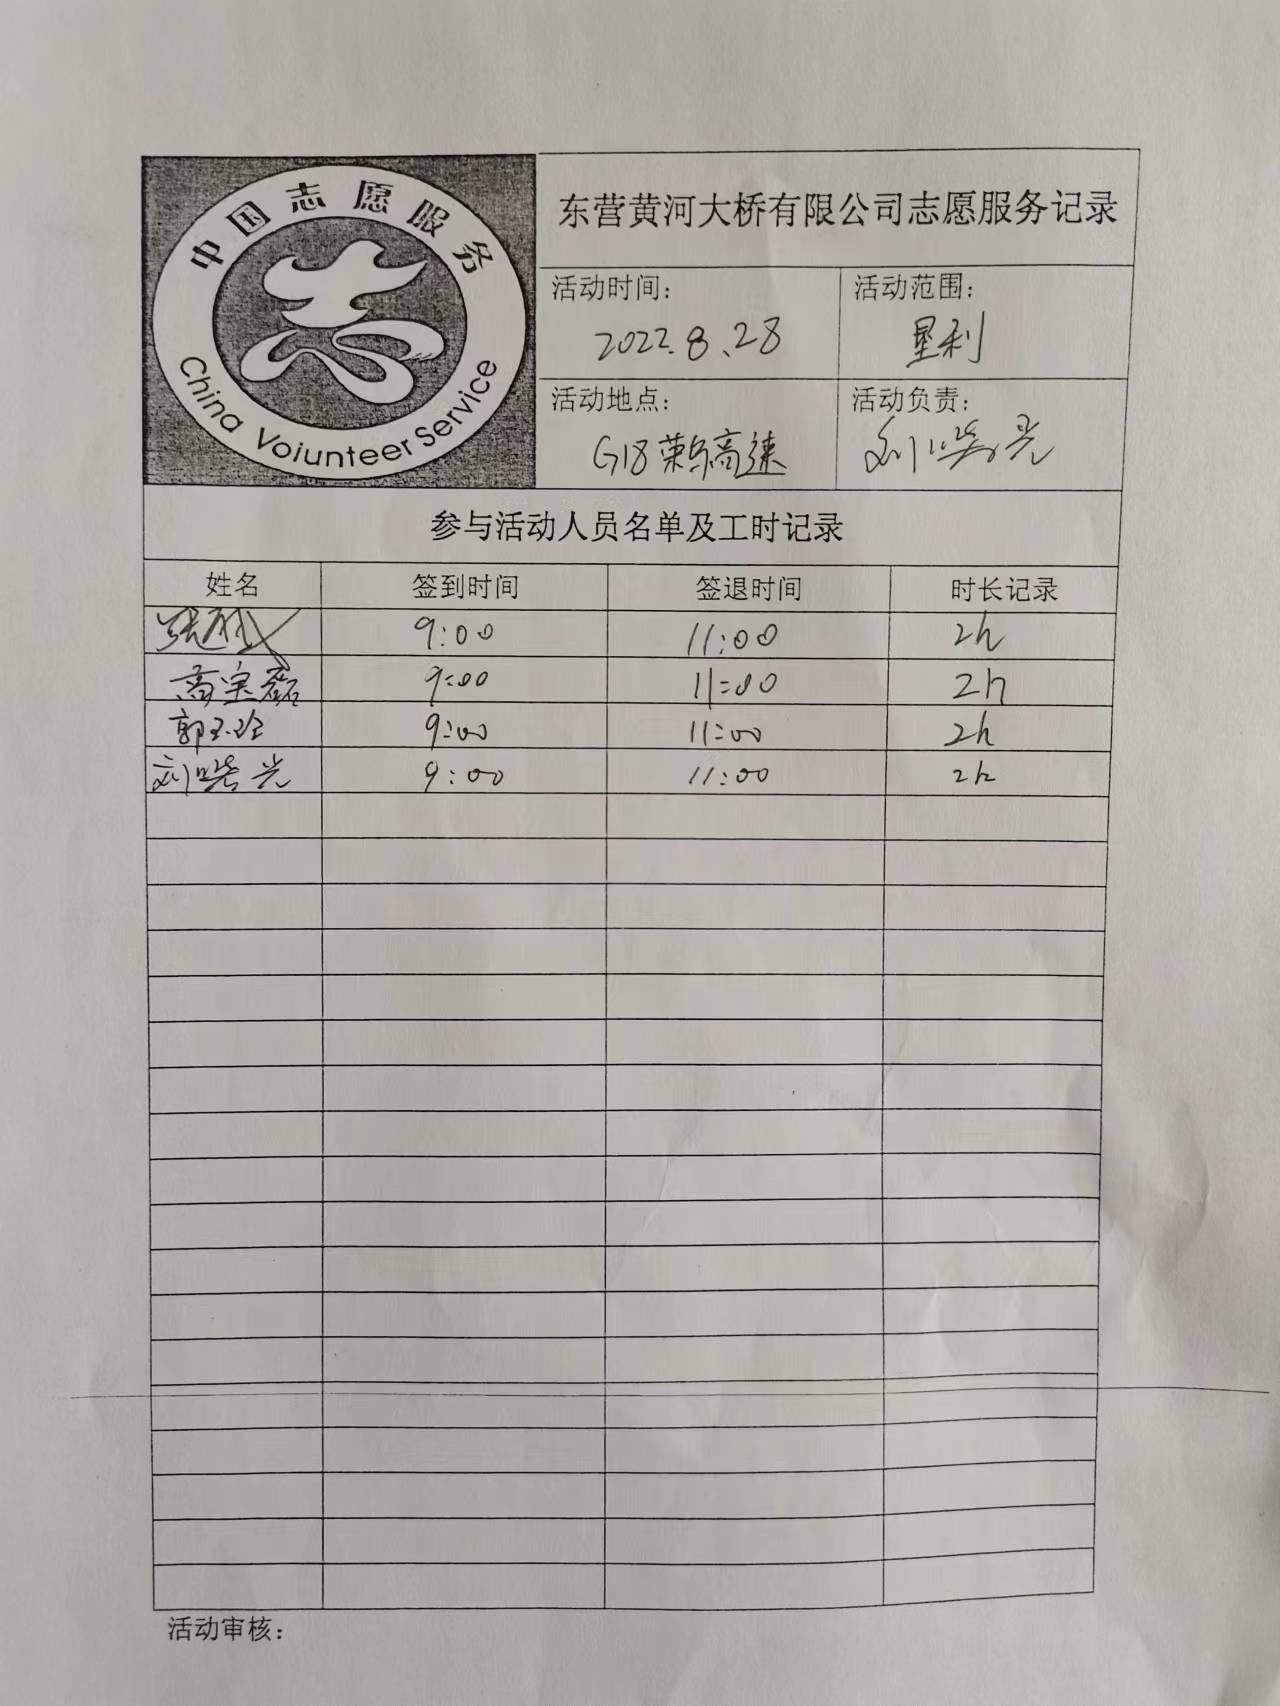 中国志愿服务
China Voiunteer Service
东营黄河大桥有限公司志愿服务记录
活动时间： 活动范围：
2022.8.28 垦利
活动地点： 活动负责：
G18荣乌高速 刘 光
参与活动人员名单及工时记录
姓名 签到时间 签退时间 时长记录
张 9:00 11:00 2h
高宝磊 9:00 11:00 2h
郭玉玲 9:00 11:00 2h
刘 光 9:00 11:00 2h
活动审核：